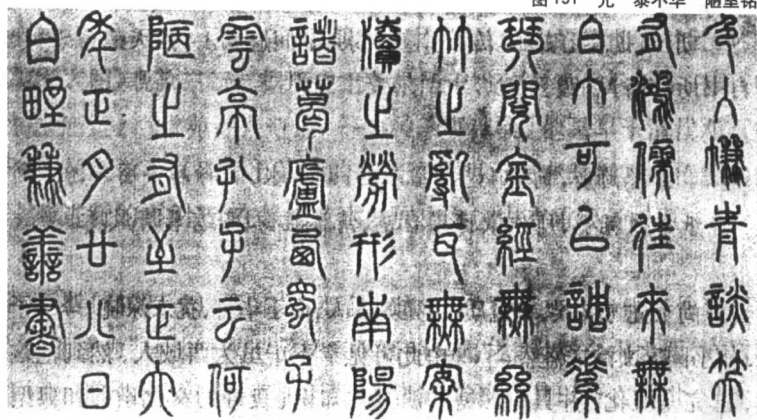 图151 元 泰不华 陋室铭
色入簾青談笑
有鴻儒往來無
白丁可以調素
琴閱金經無絲
竹之亂耳無案
牘之勞形南陽
諸葛廬西蜀子
雲亭孔子云何
陋之有至正六
年正月廿八日
白野兼善書